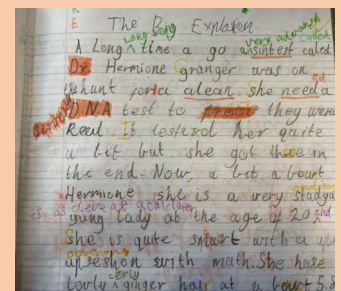 The Big Explosion
long long very advanced called
A Long time a go a sintest caled
Dr. Hermione Granger was on
a hunt for a alean. she needa ed
D.N.A test to proov they were
Real. It testerd her quite
a bit but she got there in
the end. Now, a bit a bowt
Hermione she is a very studyd
is as clever as a
yung lady at the age of 20 and
She is qute smart with a
with math. She hase
curly
lovly ginger hair at a bowt 5.8